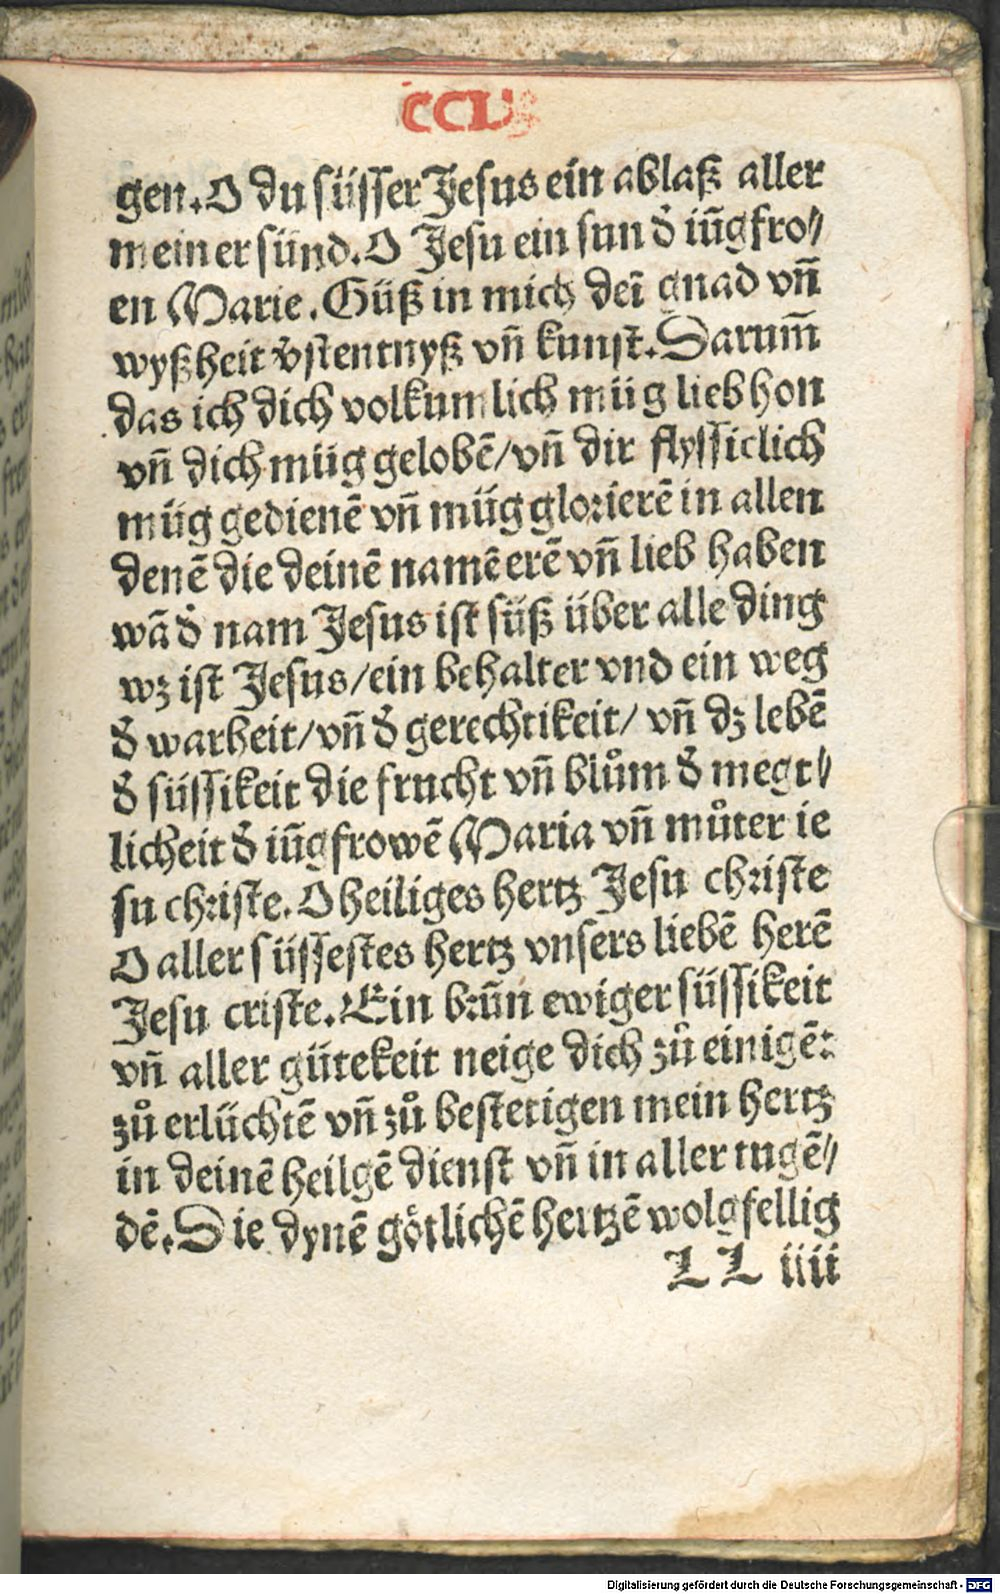 CCLV
gen. O du süsser Jesus ein ablaß aller
meiner sünd. O Jesu ein sun d̾ iūgfro⸗
en Marie. Güß in mich deī gnad vn̄
wyßheit v̾stentnyß vn̄ kunst. Darum̄
das ich dich volkumlich müg lieb hon
vn̄ dich müg gelobē/vn̄ dir flyssiclich
müg gedienē vn̄ müg glorierē in allen
denē die deinē namē erē vn̄ lieb haben
wā d̾ nam Jesus ist süß über alle ding
wz ist Jesus/ein behalter vnd ein weg
d̾ warheit/vn̄ d̾ gerechtikeit/ vn̄ dz lebē
d̾ süssikeit die frucht vn̄ blům d̾ megt⸗
licheit d̾ iūgfrowē Maria vn̄ můter ie
su christe. O heiliges hertz Jesu christe
O aller süssestes hertz vnsers liebē herē
Jesu criste. Ein brūn ewiger süssikeit
vn̄ aller gütekeit neige dich zů einigē:
zů erlüchtē vn̄ zů bestetigen mein hertz
in deinē heilgē dienst vn̄ in aller tugē⸗
dē. Die dynē götlichē hertzē wolgfellig
LL iiii
Digitalisierung gefördert durch die Deutsche Forschungsgemeinschaft - DFG